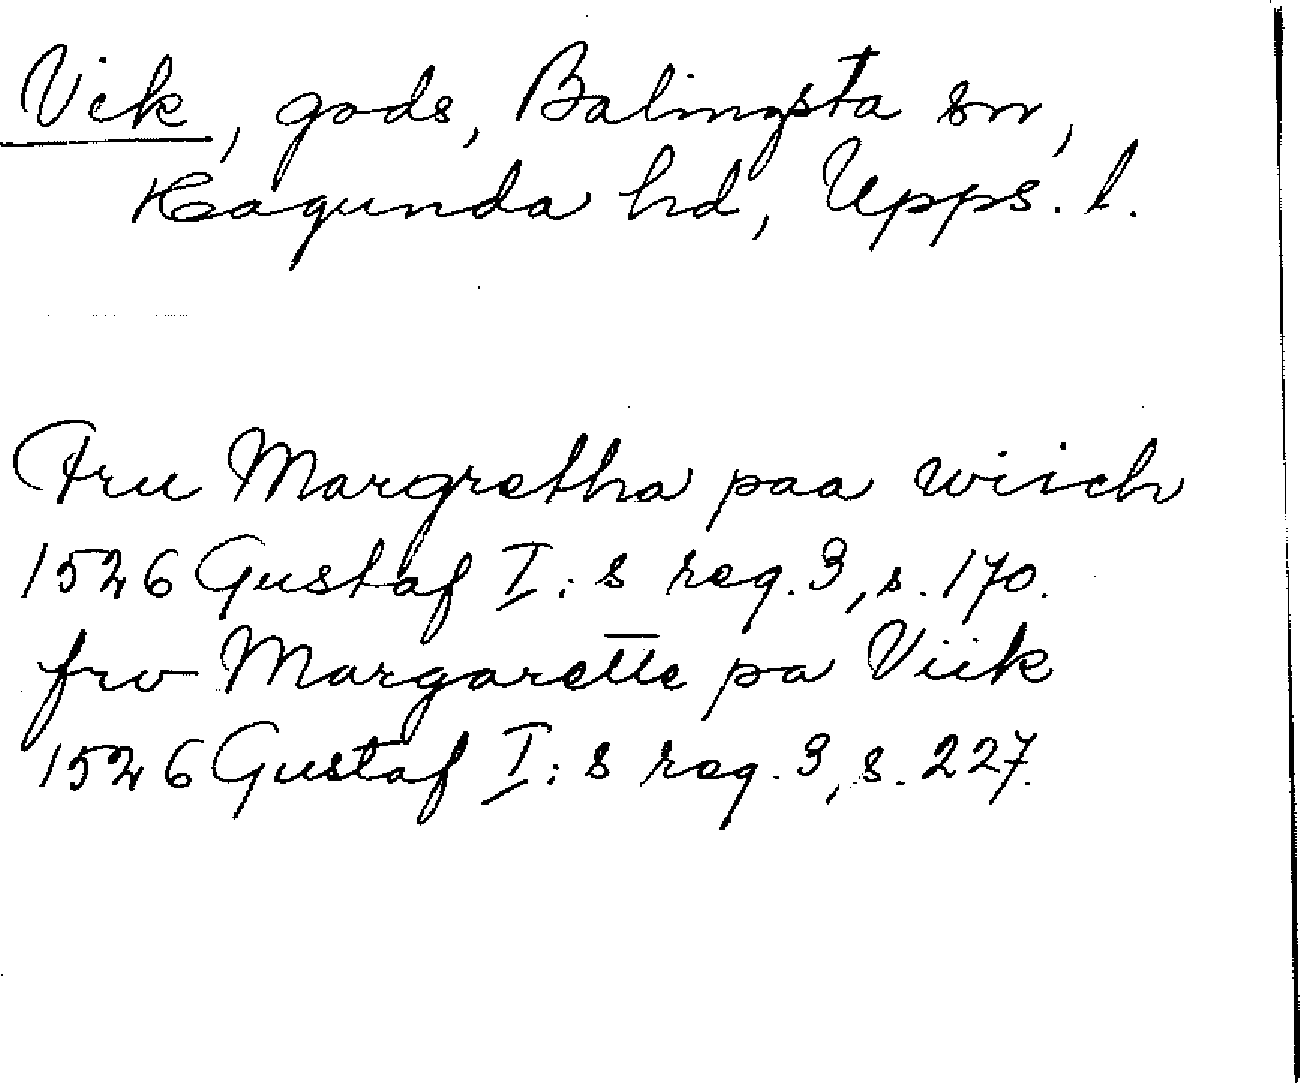 Vik, gods, Balingsta sn,
Hagunda hd, Upps. l.
Fru Margretha paa wiich
1526 Gustaf I:s reg. 3, s. 170.
frv Margarette pa Viik
1526 Gustaf I:s reg. 3, s. 227.